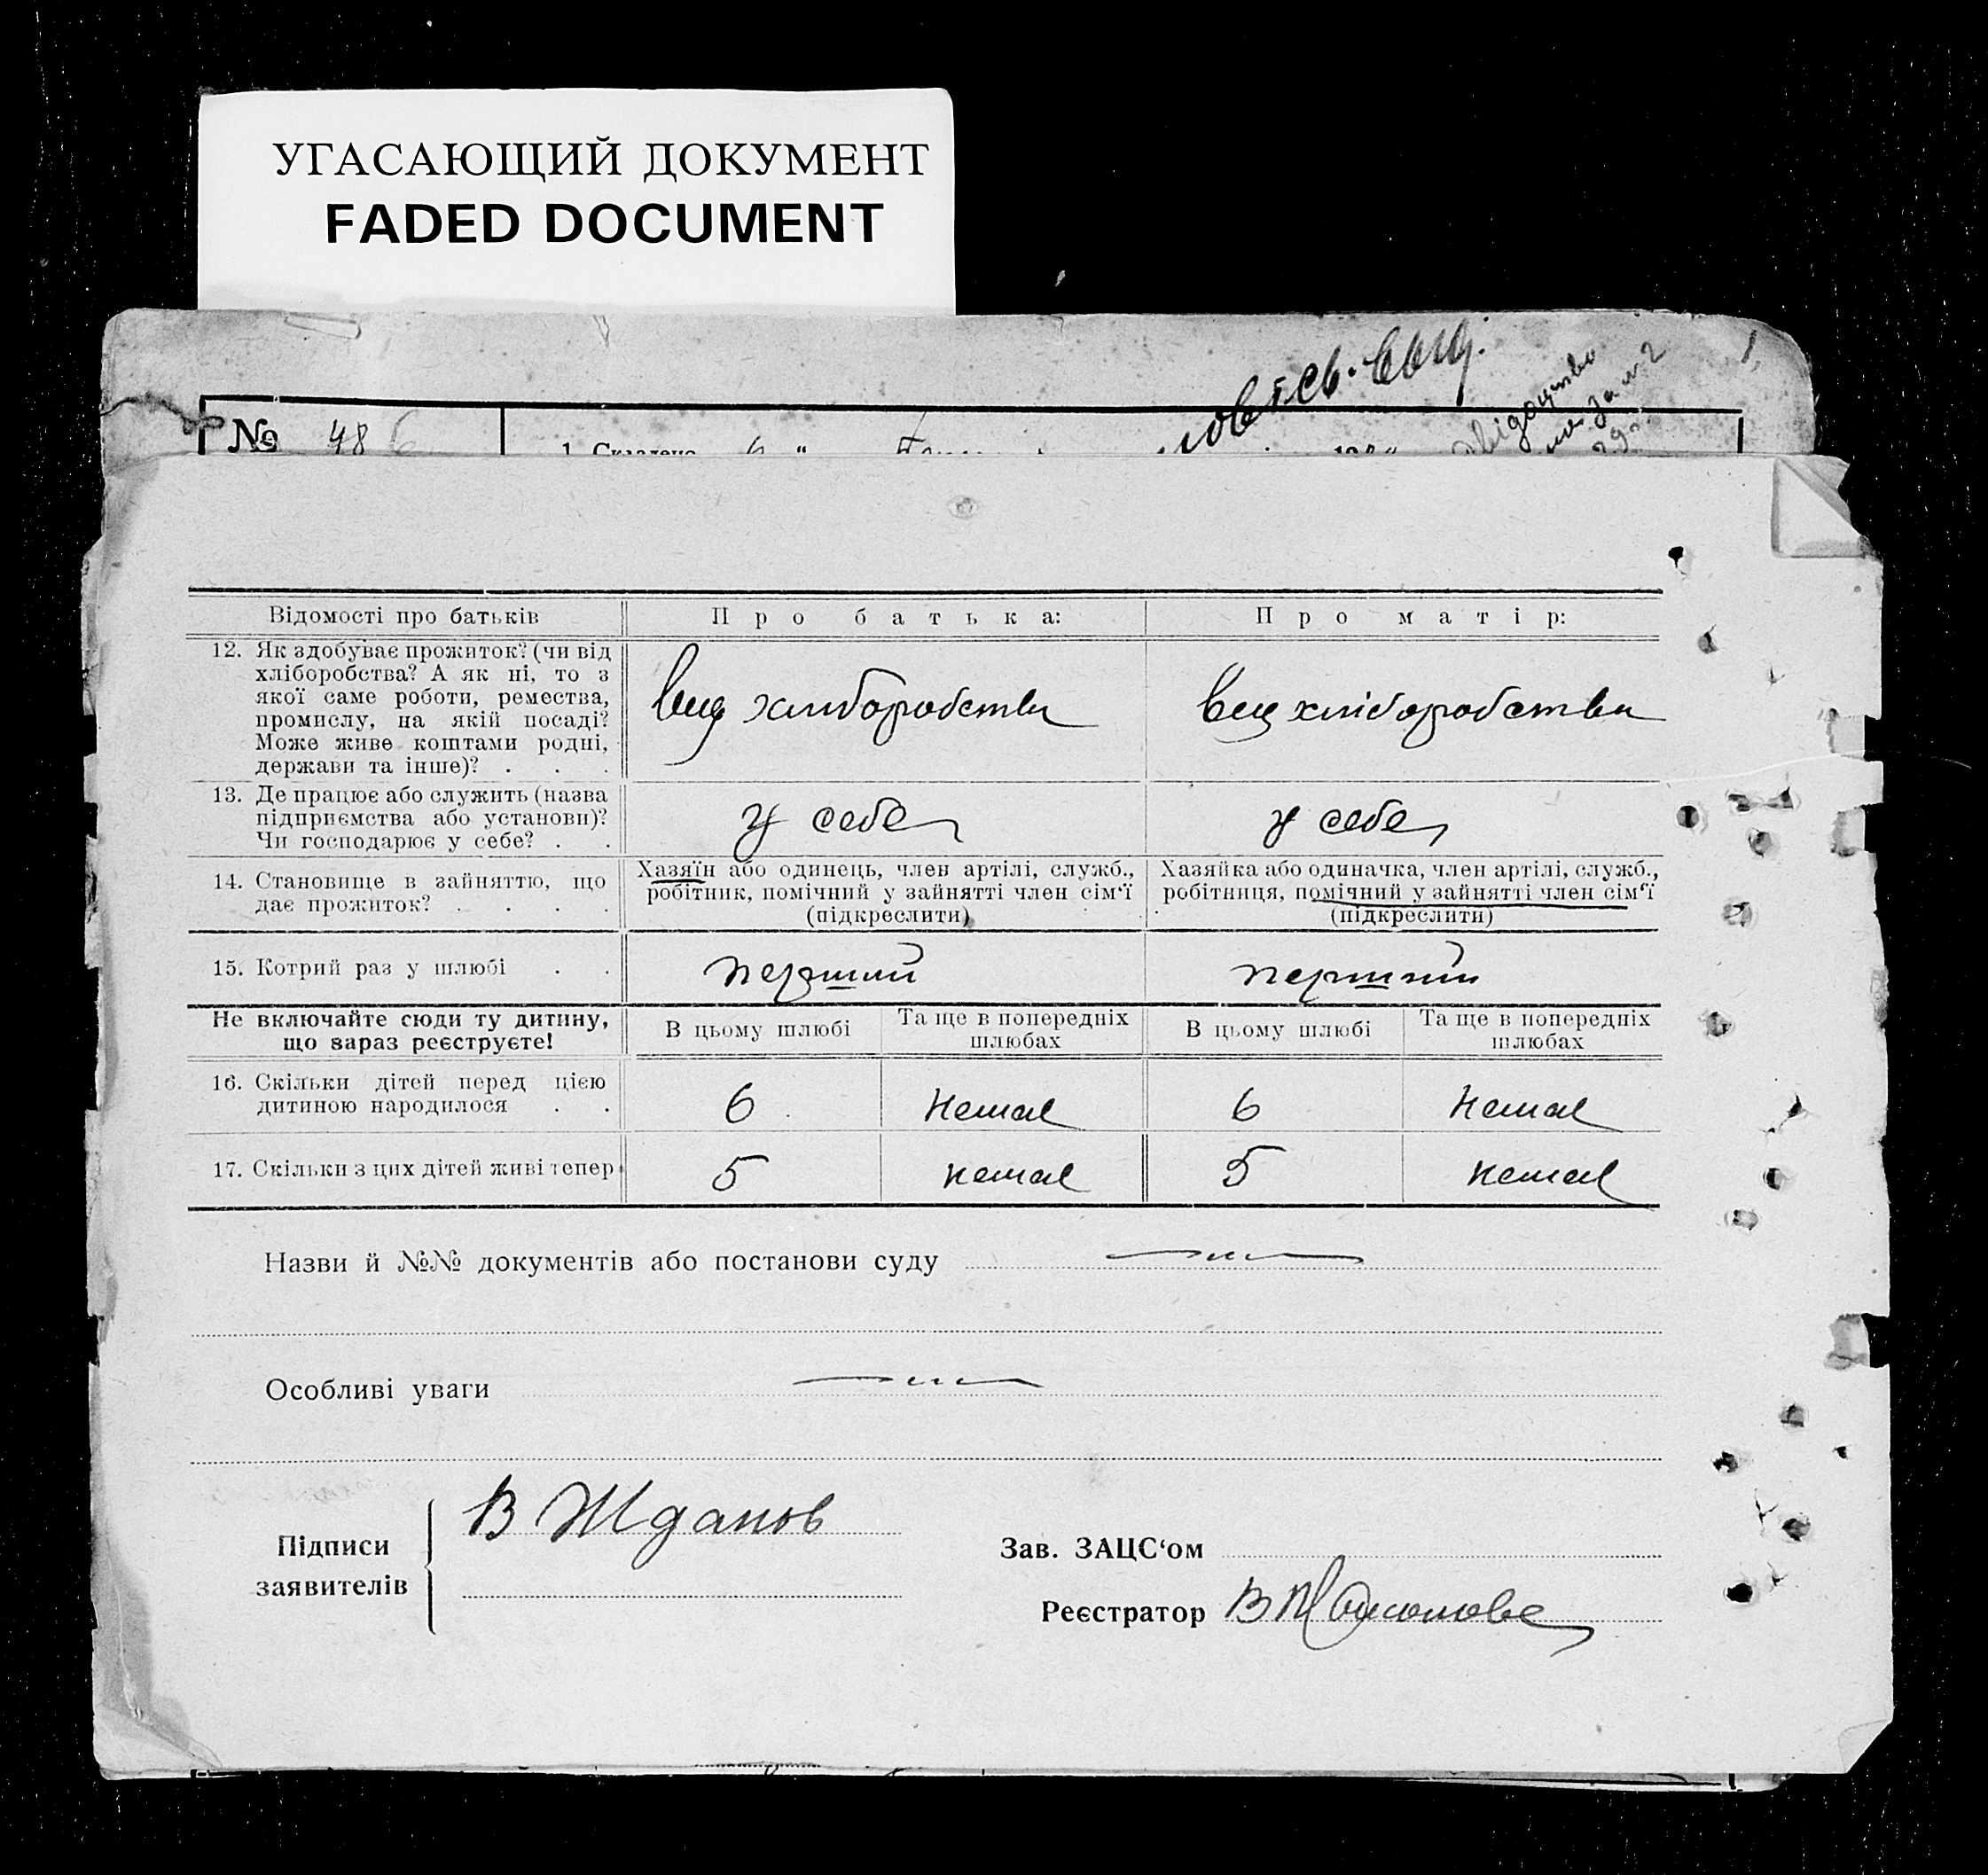 УГАСАЮЩИЙ ДОКУМЕНТ
FADED DOCUMENT
№ 486
1. Складено 6 "
Відомості про батьків Про батька: Про матір:
12. Як здобуває прожиток? (чи від
хліборобства? А як ні, то з
якої саме роботи, ремества,
промислу, на якій посаді?
Може живе коштами родні,
держави та інше)? . . .
хлиборобства
хліборобства
13. Де працює або служить (назва
підприємства або установи)?
Чи господарює у себе? . .
у себе
у себе
14. Становище в зайняттю, що
дає прожиток? . . . .
Хазяїн або одинець, член артілі, служб.,
робітник, помічний у зайнятті член сім'ї
(підкреслити)
Хазяйка або одиначка, член артілі, служб.,
робітниця, помічний у зайнятті член сім'ї
(підкреслити)
15. Котрий раз у шлюбі . . перший перший
Не включайте сюди ту дитину,
що зараз реєструєте!
В цьому шлюбі Та ще в попередніх
шлюбах
В цьому шлюбі Та ще в попередніх
шлюбах
16. Скільки дітей перед цією
дитиною народилося . .
6 немає 6 немає
17. Скільки з цих дітей живі тепер 5 немає 5 немає
Назви й №№ документів або постанови суду
Особливі уваги
Підписи
заявителів
В Жданов
Зав. ЗАЦС'ом
Реєстратор